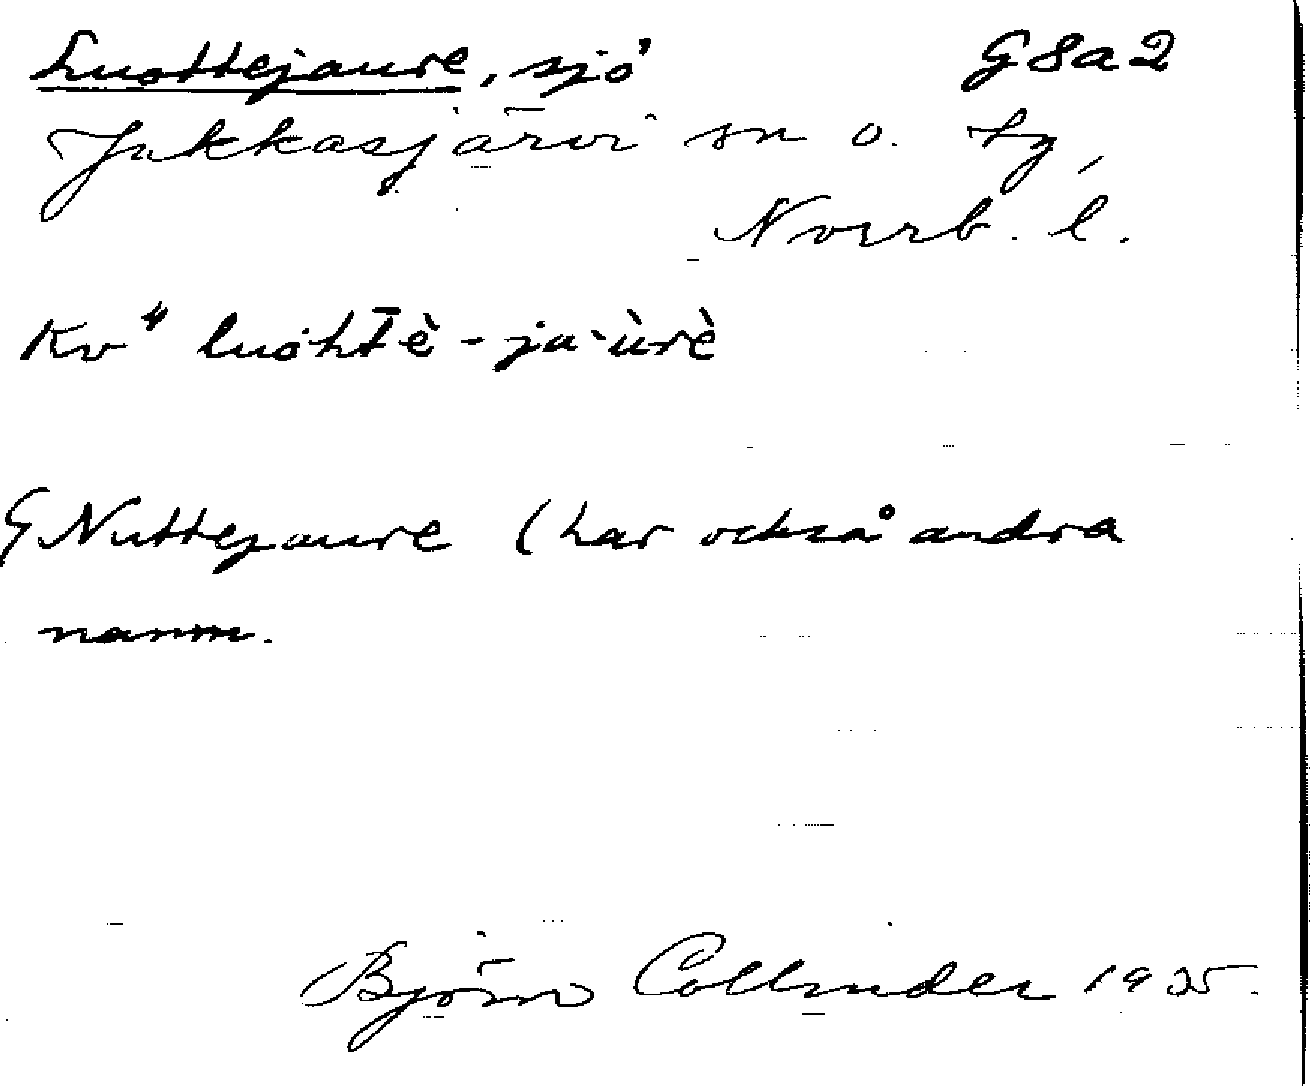 Luottejaure, sjö G8a2
Jukkasjärvi sn o. tg,
Norrb. l.
Kv" luohtè-ja·ùrè
G Nuttejaure (har också andra
namn.
Björn Collinder 1935.